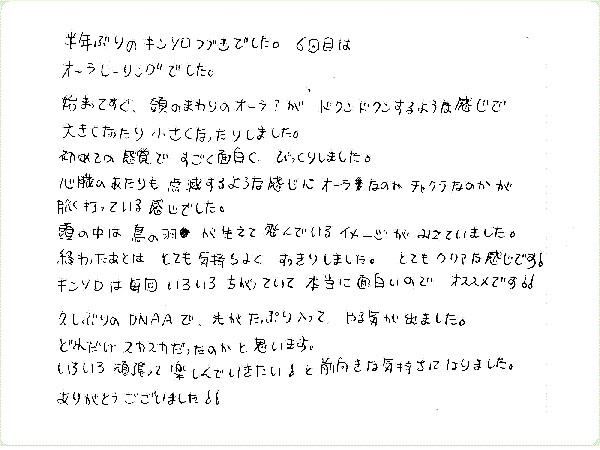 半年ぶりのキンソロつづきでした。6回目は
オーラヒーリングでした。
始まってすぐ、頭のまわりのオーラ?が ドクンドクンするような感じで
大きくなったり小さくなったりしました。
初めての感覚で すごく面白く、びっくりしました。
心臓のあたりも 点滅するような感じに オーラなのか チャクラなのかが
脈打っている感じでした。
頭の中は 鳥の羽が生えて飛んでいるイメージが みえていました。
終わったあとは とても気持ちよく すっきりしました。とてもクリアな感じです!
キンソロは毎回 いろいろちがっていて 本当に面白いので オススメです!!
久しぶりのDNAAで、光がたっぷり入って、やる気が出ました。
どれだけ スカスカだったのかと思います。
いろいろ頑張って楽しんでいきたい!と前向きな気持ちになりました。
ありがとうございました!!